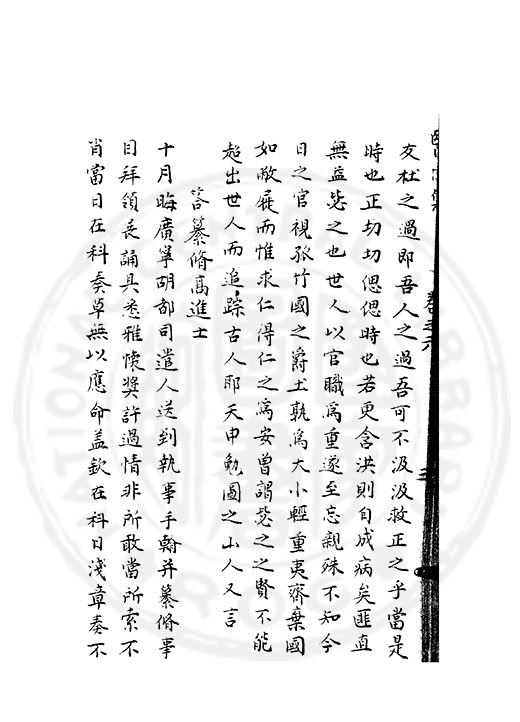 友杜之過即吾人之過吾可不汲汲救正之乎當是
時也正切切偲偲時也若更含洪則自成病矣匪直
無益毖之也世人以官職爲重遂至忘親殊不知今
日之官視孤竹國之爵土孰爲大小輕重夷齊棄國
如敝屣而惟求仁得仁之爲安曾謂毖之之賢不能
超出世人而追踪古人耶天申勉圖之山人又言
荅纂脩髙進士
十月晦廣寧胡都司遣人送到執事手翰并纂脩事
目拜領長誦具悉雅懐奬許過情非所敢當所索不
肖當日在科奏草無以應命盖欽在科日淺章奏不